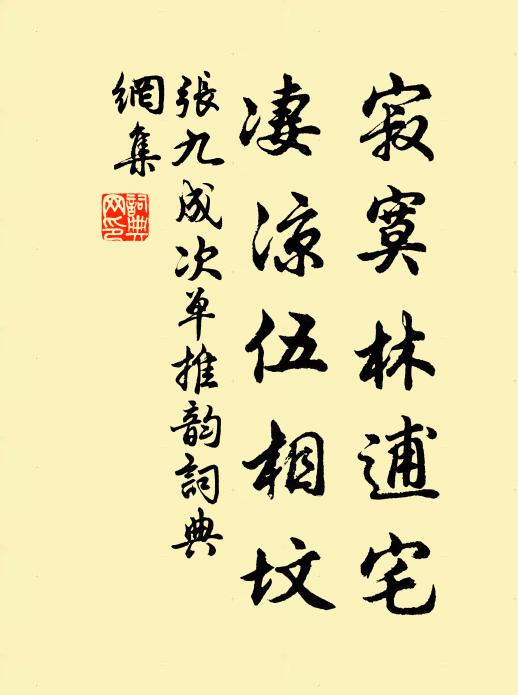 寂寞林逋宅
凄涼伍相墳
張九成次單推韵詞典
網集
詞典
网印